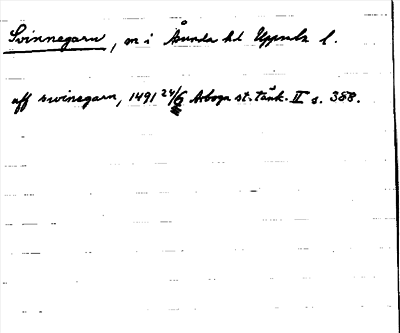 Svinnegarn, sn i Åsunda hd Uppsala l.
aff swinegarn, 1491 24/6 Arboga st. tänk. II s. 388.